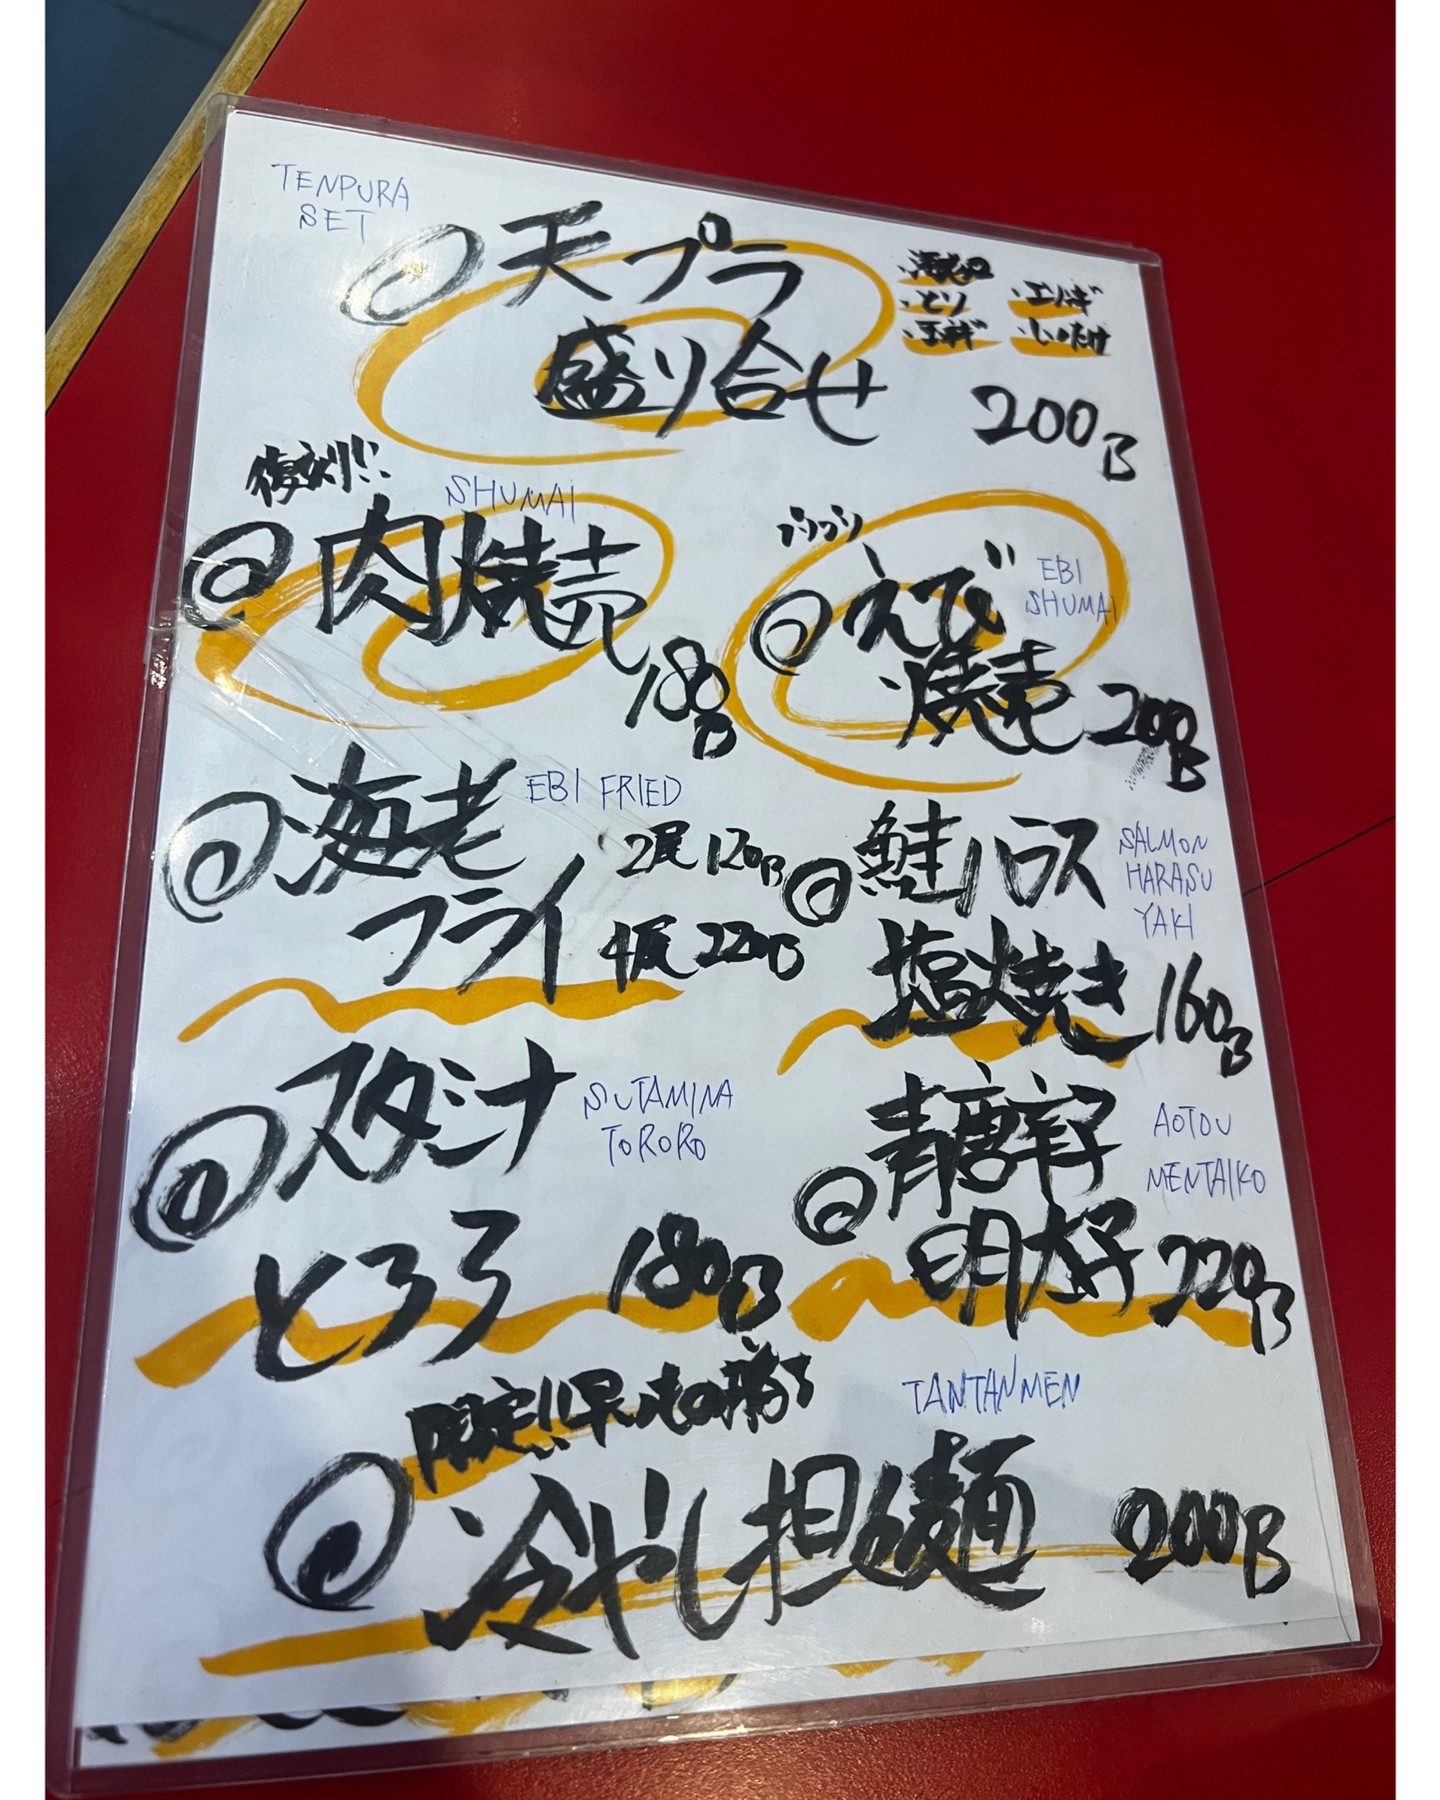 TENPURA
SET
天プラ
盛り合せ
・海老×2
・とり
・玉ネギ
・エリンギ
・しいたけ
200B
復刻!!
SHUMAI
肉焼売
180B
プリプリ
えび
焼売
EBI
SHUMAI
200B
海老
フライ
EBI FRIED
2尾 120B
4尾 220B
鮭ハラス
塩焼き
SALMON
HARASU
YAKI
160B
スタミナ
とろろ
SUTAMINA
TORORO
180B
青唐辛子
明太子
AOTOU
MENTAIKO
220B
限定!!早いもの勝ち
TANTANMEN
冷やし担々麺
200B